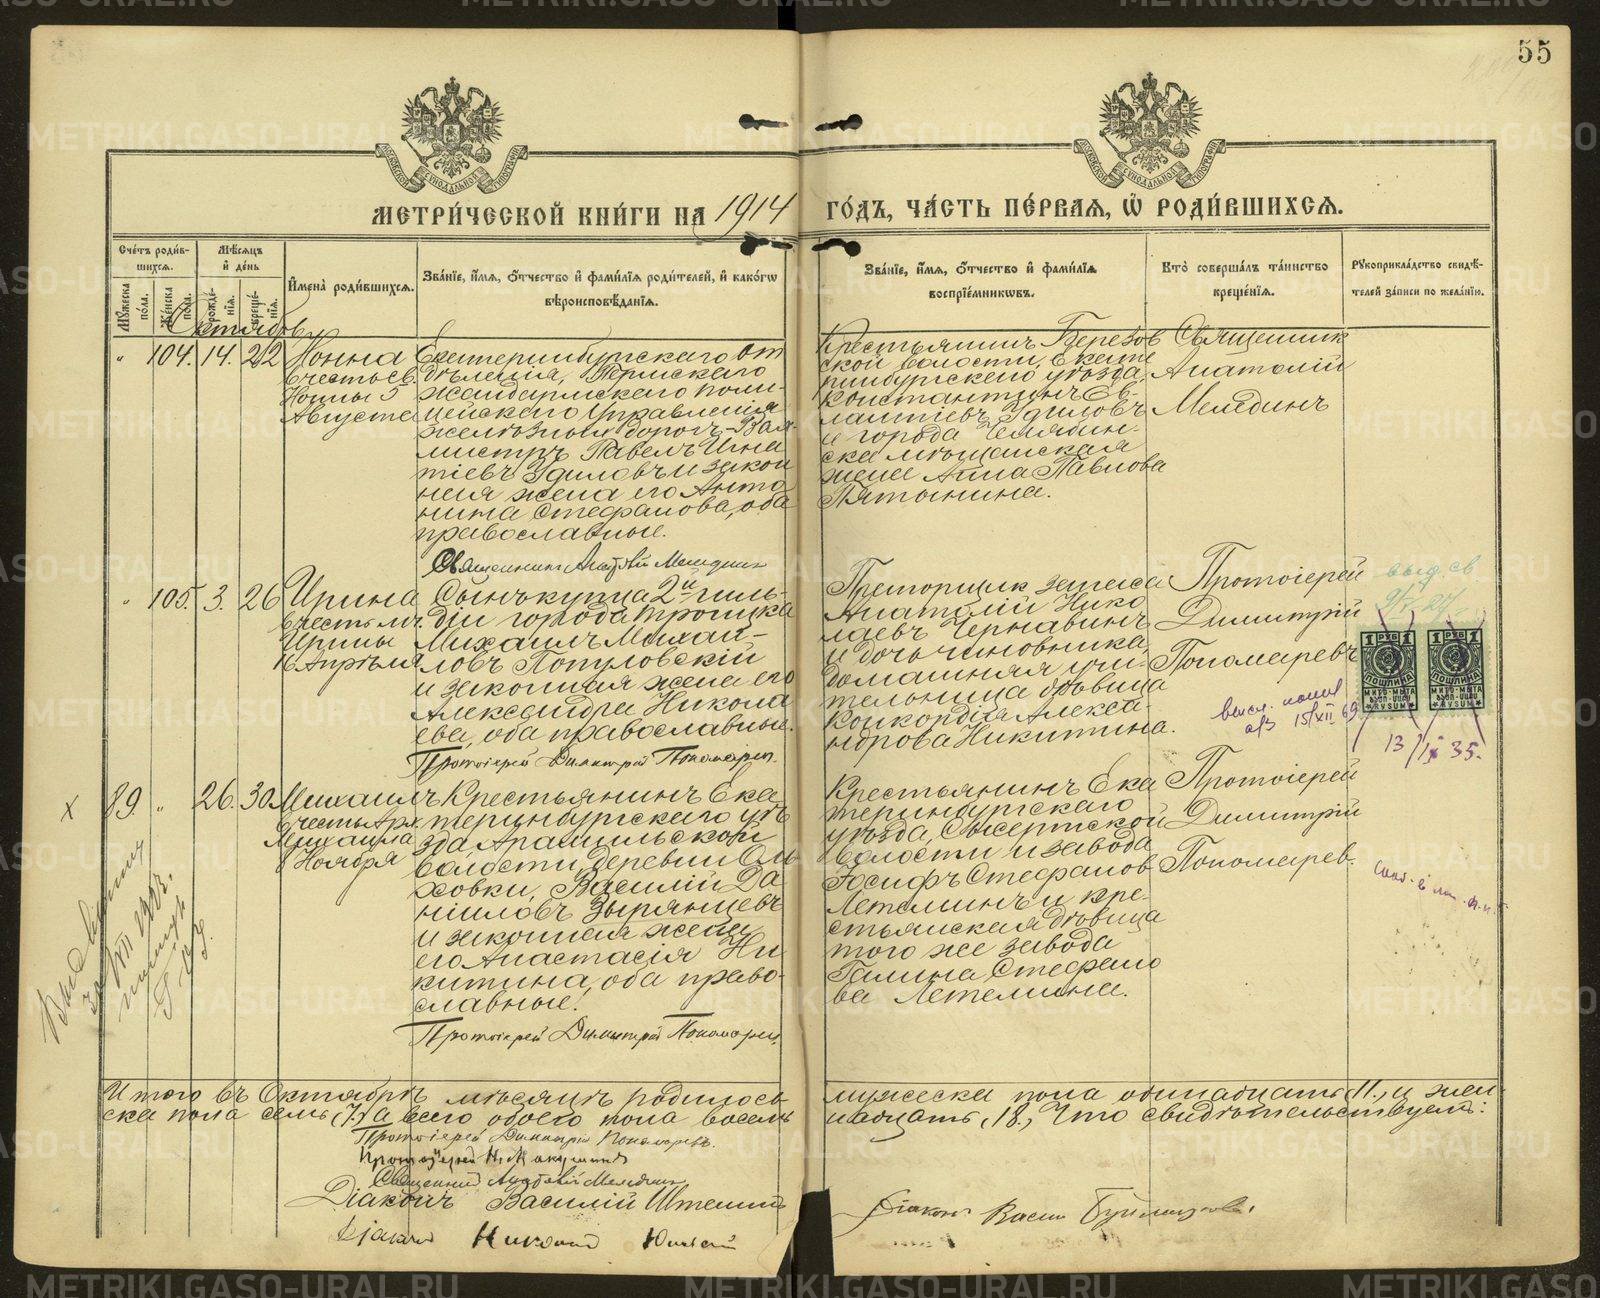 55
МЕТРИ́ЧЕСКОЙ КНИ́ГИ НА 1914 ГО́ДЪ, ЧА́СТЬ ПЕ́РВАЯ, Ѿ РОДИ́ВШИХСЯ.
Сче́тъ роди́в-
шихся.
Му́жеска по́ла.
Же́нска по́ла.
Мѣ́сяцъ
и҆ де́нь
рожде́-
нія.
креще́-
нія.
И҆мена̀ роди́вшихся.
Зва́нїе, и҆́мя, ѻ҆́тчество и҆ фами́лїя роди́телей, и҆ како́гѡ
вѣроисповѣ́данїя.
Зва́нїе, и҆́мя, ѻ҆́тчество и҆ фами́лїя
воспрїе́мниковъ.
Кто̀ соверша́лъ та́инство
креще́нїя.
Рꙋкоприкла́дство свидѣ́-
телей за́писи по жела́нїю.
Октябрь
" 104. 14. 22
Нонна
въ честь св.
Нонны 5
Августа
Екатеринбургскаго от
дѣленія, Пермскаго
жандармскаго поли-
цейскаго Управленія
желѣзныхъ дорогъ-Вах-
мистръ Павелъ Игна
тіевъ Удиловъ и закон
ная жена его Анто
нина Стефанова, оба
православные.
Священникъ Анатолій Меледин
Крестьянинъ Березов
ской волости, Екате
ринбургскаго уѣзда,
Константинъ Ев-
лампіевъ Удиловъ
и города Челябин-
ска мѣщанская
жена Анна Павлова
Пятынина.
Священник
Анатолій
Мелединъ
" 105. 3. 26
Ирина
въ честь мч.
Ирины
16 Апрѣля
Сынъ купца 2й гиль-
діи города Троицка
Михаилъ Михаи-
ловъ Популовскій
и законная жена его
Александра Никола
ева, оба православные.
Протоіерей Димитрій Пономарев.
Преторщик запаса
Анатолій Нико
лаевъ Чернавинъ
и дочь чиновника,
домашняя учи-
тельница дѣвица
Конкордія Алекса-
ндрова Никитина.
Протоіерей
Димитрій
Пономаревъ
выд. св.
1 РУБ 1
ПОШЛИНА
1 РУБ 1
ПОШЛИНА
15/XII 69
13/IX 35.
х 89. " 26. 30
Михаилъ
въ честь Арх.
Михаила
8 Ноября
Крестьянинъ Ека
теринбургскаго уѣ
зда Арамильской
волости, деревни Оль
ховки, Василій Да
ниловъ Зырянцевъ
и законная жена
его Анастасія Ни
китина, оба право-
славные.
Протоіерей Димитрій Пономарев.
Крестьянинъ Ека
теринбургскаго
уѣзда, Сысертской
волости и завода
Іосифъ Стефанов
Летеминъ и кре-
стьянская дѣвица
того же завода
Галина Стефано
ва Летемина.
Протоіерей
Димитрій
Пономарев.
Итого въ Октябрѣ мѣсяцѣ родилось мужеска пола одиннадцать, 11., и жен
ска пола семь (7) а всего обоего пола восем надцать, 18., Что свидѣтельствуемъ:
Протоіерей Димитрій Пономаревъ.
Протоіерей Н. Макушинъ
Священникъ Анатолій Мелединъ
Діаконъ Василій
Діаконъ
Діаконъ
METRIKI.GASO-URAL.RU